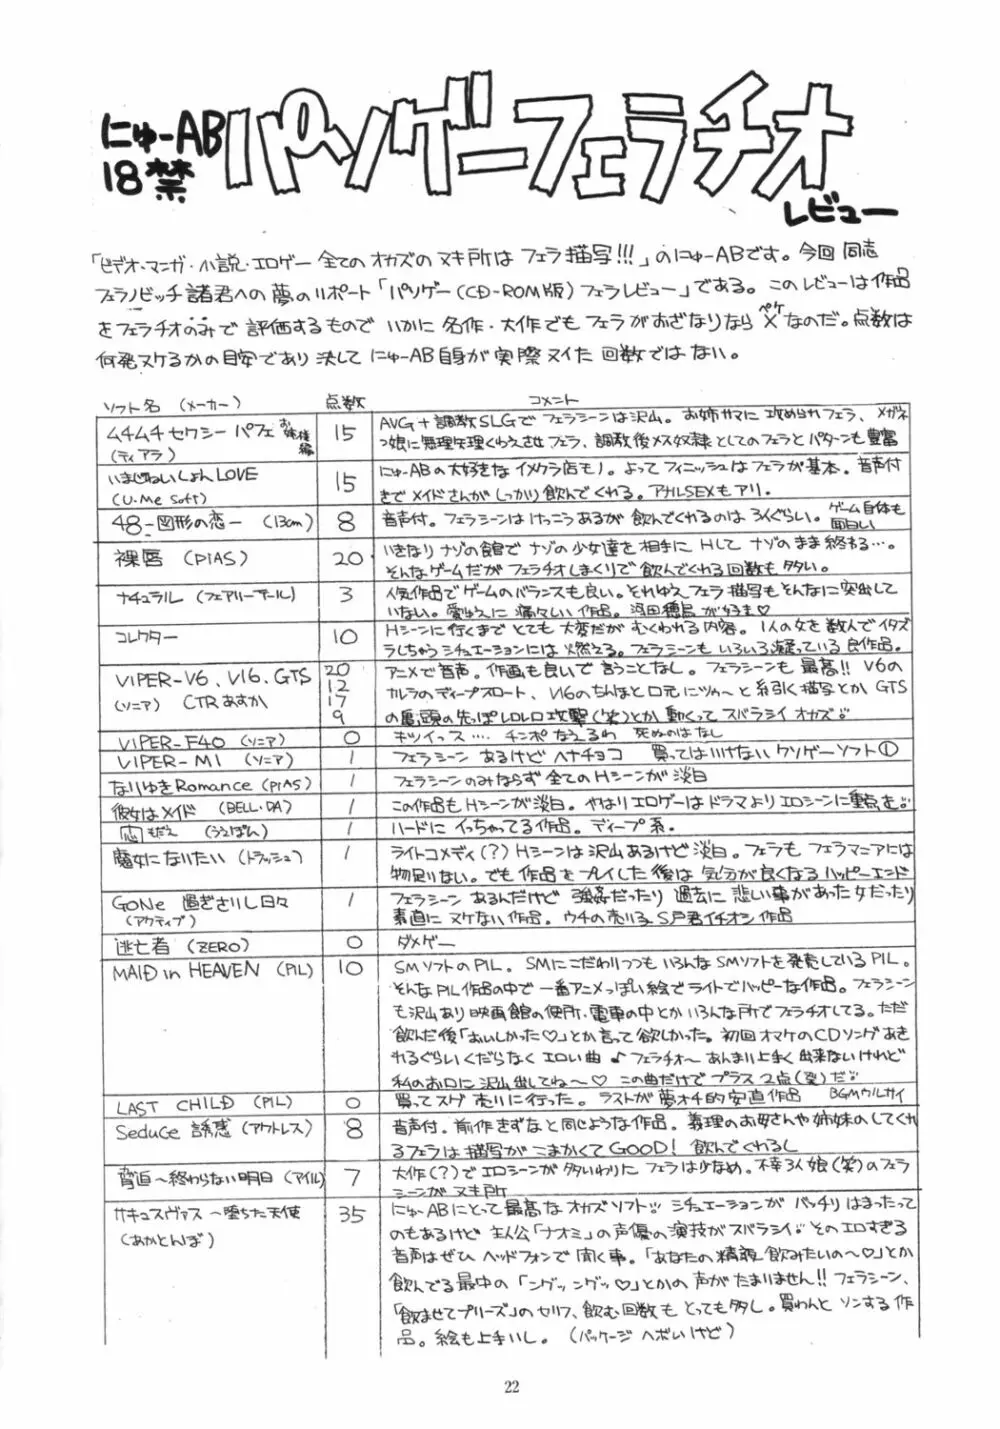 にゅーAB
18禁
パソゲーフェラチオ
レビュー
「ビデオ・マンガ・小説・エロゲー全てのオカズのヌキ所はフェラ描写!!!」のにゅーABです。今回同志
フェラノビッチ諸君への夢のリポート「パソゲー(CD-ROM版)フェラレビュー」である。このレビューは作品
をフェラチオのみで評価するものでいかに名作・大作でもフェラがおざなりなら×なのだ。点数は
ペケ
何発ヌケるかの目安であり決してにゅーAB自身が実際ヌイた回数ではない。
ソフト名(メーカー) 点数 コメント
ムチムチセクシーパフェ お姉様編 15 AVG+調教SLGでフェラシーンは沢山。お姉サマに攻められフェラ、メガネ
(ティアラ) っ娘に無理矢理くわえさせフェラ、調教後メス奴隷としてのフェラとパターンも豊富
いまじねいしょんLOVE 15 にゅーABの大好きなイメクラ店もノ。よってフィニッシュはフェラが基本。音声付
(U・Me Soft) きでメイドさんがしっかり飲んでくれる。アナルSEXもアリ。
48-図形の恋-(13cm) 8 音声付。フェラシーンはけっこうあるが飲んでくれるのは3人ぐらい。ゲーム自体も面白い
裸唇(PIAS) 20 いきなりナゾの館でナゾの少女達を相手にHしてナゾのまま終わる…。
そんなゲームだがフェラチオしまくりで飲んでくれる回数も多い。
ナチュラル(フェアリーテール) 3 人気作品でゲームのバランスも良い。それゆえフェラ描写もそんなに突出して
いない。愛ゆえに痛々しい作品。が好き♡
コレクター 10 Hシーンに行くまでとても大変だがむくわれる内容。1人の女を数人でイタズ
ラしちゃうシチュエーションには燃える。フェラシーンもいろいろ凝っている良作品。
VIPER-V6、V16、GTS 20 アニメで音声。作画も良いで言うことなし。フェラシーンも最高!!V6の
(ソニア) CTRあすか 12 カルラのディープスロート、V16のちんぽと口元にツゥ〜と糸引く描写とかGTS
17
9 の亀頭の先っぽレロレロ攻撃(笑)とか動くってスバラシイオカズ!!
VIPER-F40(ソニア) 0 キツイっス…。チンポなえるわ 死ぬのはなし
VIPER-M1(ソニア) 1 フェラシーンあるけどヘナチョコ 買ってはいけないクソゲーソフト①
なりゆきRomance(PIAS) 1 フェラシーンのみならず全てのHシーンが淡白
彼女はメイド(BELL・DA) 1 この作品もHシーンが淡白。やはりエロゲーはドラマよりエロシーンに重点を!!
恋もだえ(うえぽん) 1 ハードにイっちゃってる作品。ディープ系。
魔女になりたい(トラッシュ) 1 ライトコメディ(?)Hシーンは沢山あるけど淡白。フェラもフェラマニアには
物足りない。でも作品をプレイした後は気分が良くなるハッピーエンド
GONe 過ぎさりし日々 1 フェラシーンあるんだけど強姦だったり過去に悲しい事があった女だったり
(アクティブ) 素直にヌケない作品。ウチの売り子S戸君イチオシ作品
逃亡者(ZERO) 0 ダメゲー
MAID in HEAVEN(PIL) 10 SMソフトのPIL。SMにこだわりつつもいろんなSMソフトを発売しているPIL。
そんなPIL作品の中で一番アニメっぽい絵でライトでハッピーな作品。フェラシーン
も沢山あり映画館の便所・電車の中とかいろんな所でフェラチオしてる。ただ
飲んだ後「おいしかった♡」とか言って欲しかった。初回オマケのCDソングあき
れるぐらいくだらなくエロい曲♪フェラチオ〜あんまり上手く出来ないけれど
私のお口に沢山出してね〜♡この曲だけでプラス2点(爆)だ!!
LAST CHILD(PIL) 0 買ってスグ売りに行った。ラストが夢オチ的安直作品 BGMウルサイ
Seduce 誘惑(アウトレス) 8 音声付。前作きずなと同じような作品。義理のお母さんや姉妹のしてくれ
るフェラは描写がこまかくてGOOD!飲んでくれるし
脅迫〜終わらない明日(アイル) 7 大作(?)でエロシーンが多いわりにフェラは少なめ。不幸3人娘(笑)のフェラ
シーンがヌキ所
サキュスヴァス〜堕ちた天使 35 にゅーABにとって最高なオカズソフト!!シチュエーションがバッチリはまったって
(あかとんぼ) のもあるけど主人公「ナオミ」の声優の演技がスバラシイ!!そのエロすぎる
音声はぜひヘッドフォンで聞く事。「あなたの精液飲みたいの〜♡」とか
飲んでる最中の「ングッングッ♡」とかの声がたまりません!!フェラシーン、
「飲ませてプリーズ」のセリフ、飲む回数もとっても多し。買わんとソンする作
品。絵も上手いし。(パッケージヘボいけど)
22